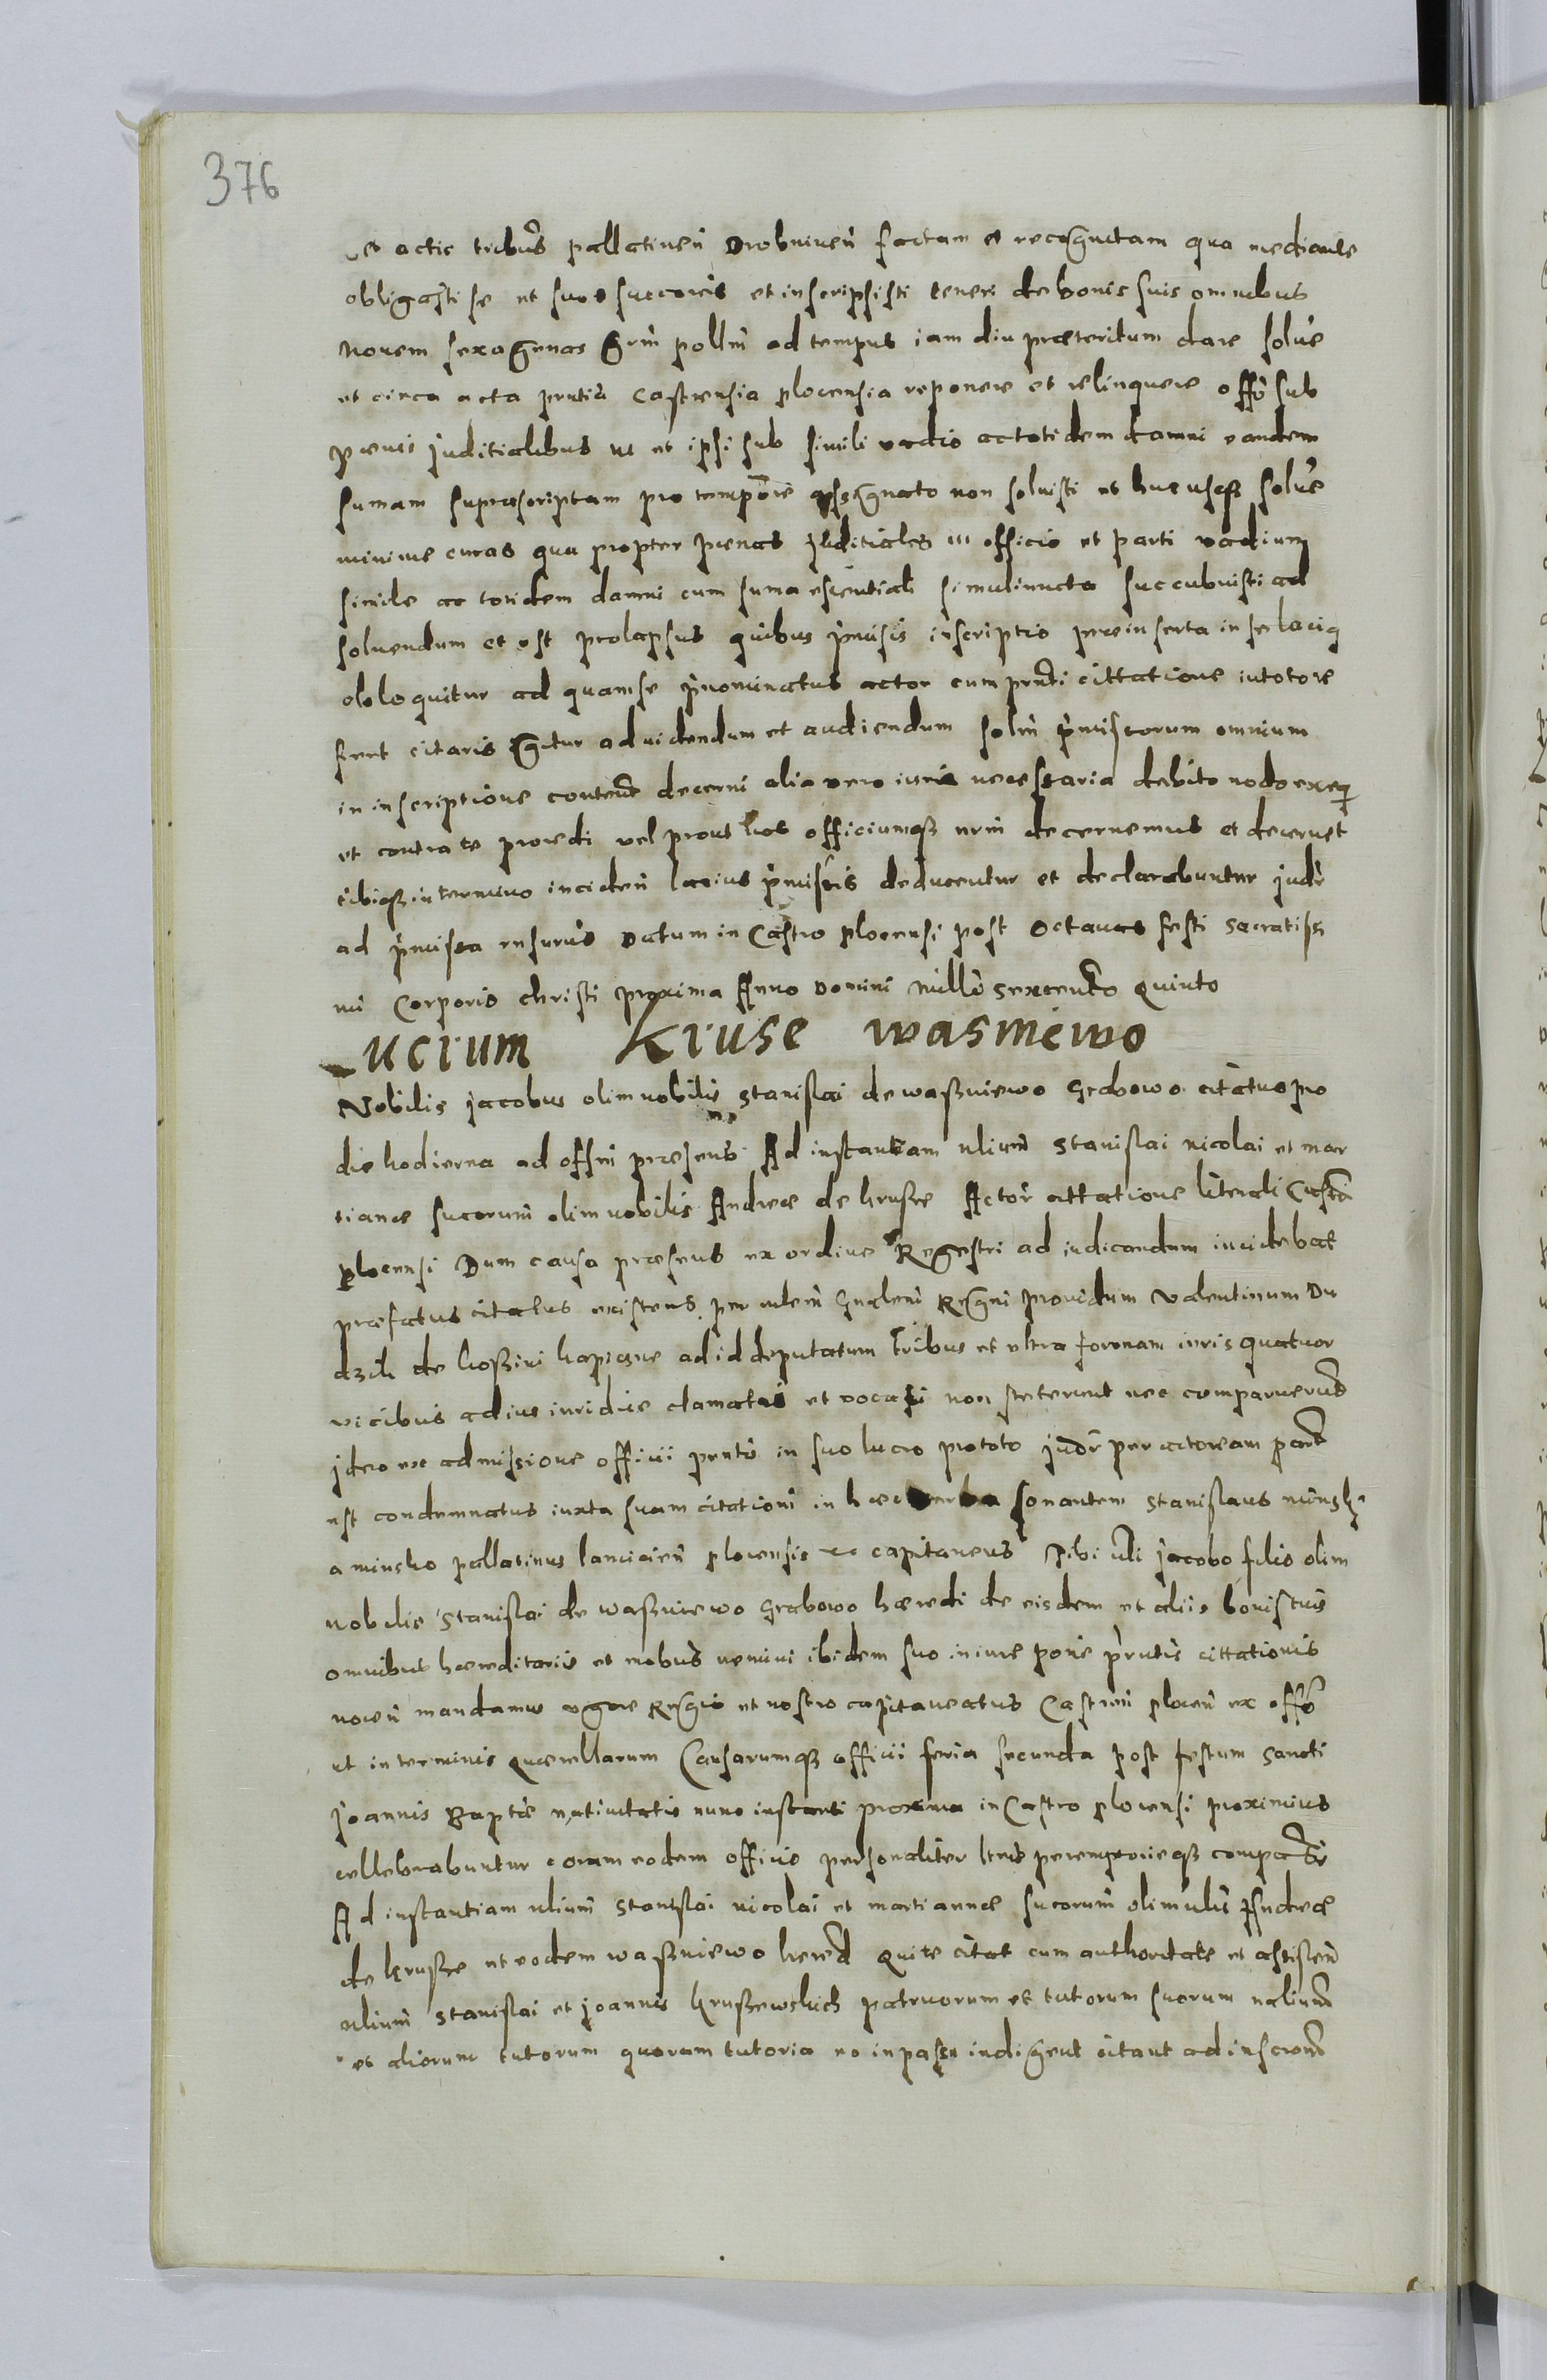 376
et actis tribus pallatinen drobninen factam et recognitam qua mediante
obligasti se et suos succores et inscripsisti teneri de bonis suis omnibus
novem sexagenas grm pollm ad tempus iam diu præteritum dare solve
et circa acta prntia castrensia plocensia reponere et relinquere offo sub
pœnis juditialibus ut et ipsi sub simili vadio ac totidem damni eandem
sumam suprascriptam pro tempore assignato non solvisti et hucusq solve
minime curas qua propter pœnas juditiales in officio et parti vadium
simile ac totidem damni cum suma essentiali simul iuncta succubuisti ad
solvendum et est prolapsus quibus pmissis inscriptio præinserta in se laciq
obloquitur ad quam se pnominatus actor cum prnti cittatione in toto re
fert citaris igitur ad videndum et audiendum solm pmissorum omnium
in inscriptione content decerni alia vero iuria necessaria debito modo exeq
et contra te procedi vel prout hos officiumq nrm decernemus et decernet
tibiq in termino inciden lacius pmissis deducentur et declarabuntur judr
ad pmissa rnsurus Datum in Castro plocensi post Octavas festi Sacratiss
mi Corporis christi proxima Anno Domini millo sexcento Quinto
Lucrum Kruse wasniewo
Nobilis jacobus olim nobilis Stanislai de waszniewo Grabowo citatus pro
die hodierna ad offm præsens Ad instantiam nlium Stanislai nicolai et mar
tianæ sucorum olim nobilis Andreæ de krusze Actor cittatione literali Castra
plocensi Dum causa præsens ex ordine Regestri ad iudicandum incidebat
præfatus citatus existens per mlem Gnalem Regni providum Valentinum Du
dzik de koszini kapiczne ad id deputatum tribus et ultra foremam iuris quatuor
vicibus ad ius iuridice clamatus et vocati non steterunt nec comparuerunt
jdeo ex admissione officii prntis in suo lucro pro toto judr per actoream part
est condemnatus iuxta suam citationi in hæc verba sonantem Stanislaus minsky
a minsko pallatinus lancicien plocensis ec capitaneus Tibi nli jacobo filio olim
nobilis Stanislai de waszniewo Grabowo hæredi de eisdem et aliis bonis tuis
omnibus hæreditariis et mobus nemini ibidem suo in iure porie prntis cittationis
nocen mandamus vgore Regio et nostro capitaneatus Castren plocen ex offo
ut in terminis quærellarum Causarumq officii feria secunda post festum Sancti
joannis Baptæ nativitatis nunc instanti proxima in Castro plocensi proximius
cellebrabuntur coram eodem officio personaliter ltius peremptorieq comparæs
Ad instantiam nlium Stanislai nicolai et martiannæ sucorum olim nlis Andreæ
de krusze et eodem waszniewo hered qui te citat cum authoritate et assisten
nlium Stanislai et joannis kruszewskich patruorum et tutorum suorum nalium
et aliorum tutorum quorum tutoria eo in passu indigent citant ad inscrone